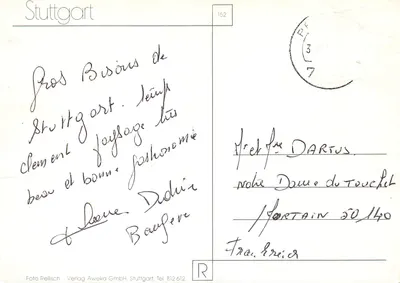 Stuttgart
Gros Bisous de
Stuttgart. temps
clement paysage très
beau et bonne gastronomie
Mr et Mme DARTUS
Notre Dame du TOUCHET
MORTAIN 50 140
Frankreich
R
Foto Frelisch Verlag Awiska GmbH, Stuttgart, Tel.